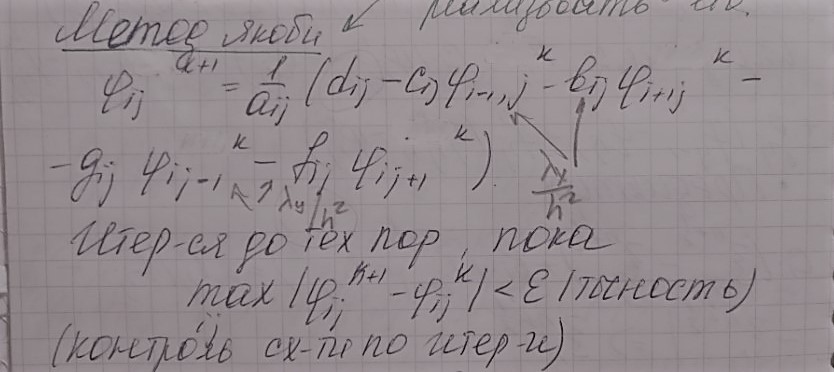 Метод якоби ↙ реализовать
φ_{ij}^{k+1} = 1/a_{ij} (d_{ij} - c_{ij} φ_{i-1,j}^k - b_{ij} φ_{i+1j}^k -
- g_{ij} φ_{ij-1}^k - f_{ij} φ_{ij+1}^k)
λy/h² λy/h²
Итер-ся до тех пор, пока
max |φ_{ij}^{k+1} - φ_{ij}^k| < ε (точность)
i,j
(контроль сх-ти по итер-и)